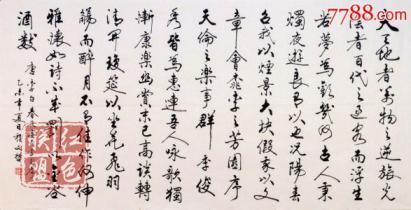 夫天地者萬物之逆旅光
陰者百代之過客而浮生
若夢爲歡幾何古人秉
燭夜遊良有以也況陽春
召我以煙景大塊假我以文
章會桃李之芳園序
天倫之樂事群季俊
秀皆爲惠連吾人咏歌獨
慚康樂幽賞未已高談轉
清開瓊筵以坐花飛羽
觴而醉月不有佳作何伸
雅懷如詩不成罰依金谷
酒數
唐李白春
乙未年夏日
红色
联盟
7788.com